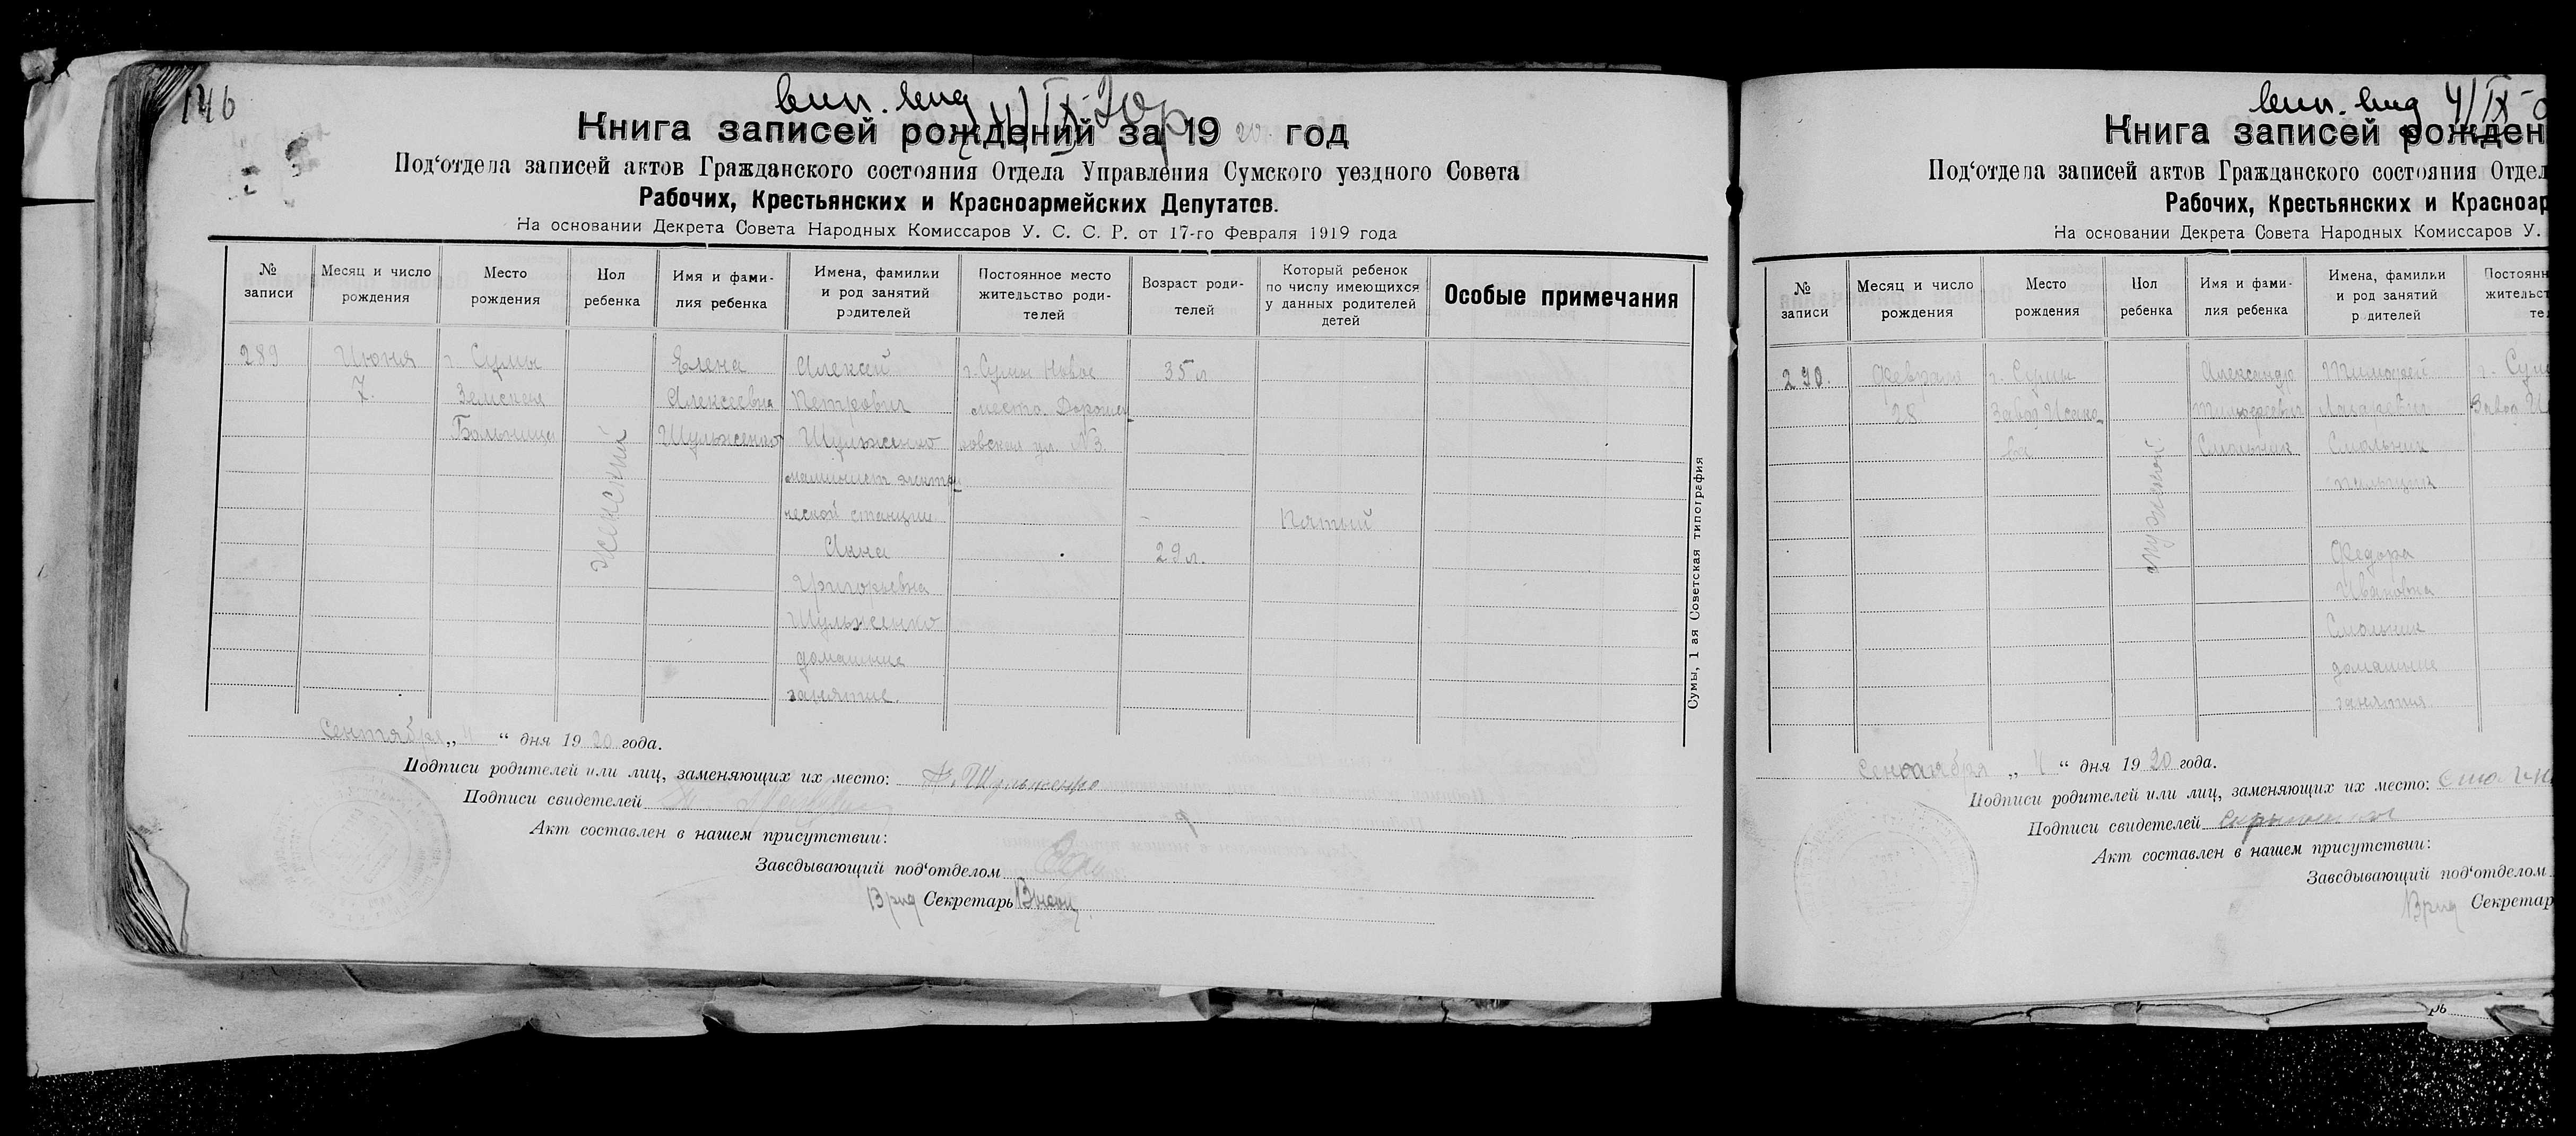 146
4/IX-20
Книга записей рождений за 1920 год
Под‘отдела записей актов Гражданского состояния Отдела Управления Сумского уездного Совета
Рабочих, Крестьянских и Красноармейских Депутатов.
На основании Декрета Совета Народных Комиссаров У. С. С. Р. от 17-го Февраля 1919 года
№ записи
Месяц и число рождения
Место рождения
Пол ребенка
Имя и фами-
лия ребенка
Имена, фамилии
и род занятий
родителей
Постоянное место
жительство роди-
телей
Возраст роди-
телей
Который ребенок
по числу имеющихся
у данных родителей
детей
Особые примечания
289
Июня
7.
г. Сумы
Земская
Больница
женский
Елена
Алексеевна
Шульженко
Алексей
Петрович
Шульженко
машинист электри
ческой станции
Анна
Григорьевна
Шульженко
домашние
занятие.
г. Сумы Новое
место Дорошен
ковская ул. №3.
35 л
29 л.
Пятый
Сумы, 1 ая Советская типография
Сентября „ 4 “ дня 1920 года.
Подписи родителей или лиц, заменяющих их место: А. Шульженко
Подписи свидетелей
Акт составлен в нашем присутствии:
Заведывающий под‘отделом
Врид Секретарь
4/IX
Книга записей рожден
Под‘отдела записей актов Гражданского состояния Отдел
Рабочих, Крестьянских и Красноар
На основании Декрета Совета Народных Комиссаров У.
№ записи
Месяц и число рождения
Место рождения
Пол ребенка
Имя и фами-
лия ребенка
Имена, фамилии
и род занятий
родителей
Постоянн
жительст
те
290.
Февраля
28
г. Сумы
Завод Исаке
ва
мужской
Александр
Тимофеевич
Смольник
Тимофей
Лазаревич
Смольник
пильщик
Федора
Ивановна
Смольник
домашние
занятия
г. Сум
Завод И
Сентября „ 4 “ дня 1920 года.
Подписи родителей или лиц, заменяющих их место:
Подписи свидетелей
Акт составлен в нашем присутствии:
Заведывающий под‘отделом
Врид Секретар